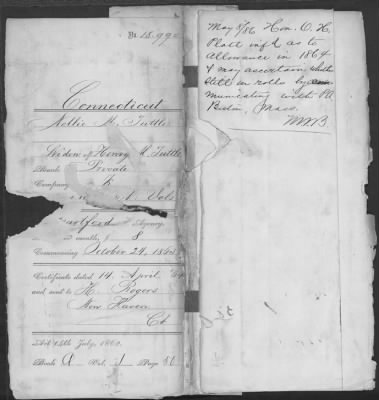 No. 18.990
Connecticut
Nellie M. Tuttle
Widow of Henry C. Tuttle
Rank Private
Company K
Vols
Hartford Agency
8
Commencing October 24, 1863
Certificate dated 14 April, /64
and sent to H. Rogers
New Haven
Ct
Act 14th July, 1862.
Book A Vol. 1 Page 56
May 5/86 Hon. O. H.
Platt infd as to
allowance in 1864
& may ascertain whether
still on rolls by com
municating with PA
Boston, Mass.